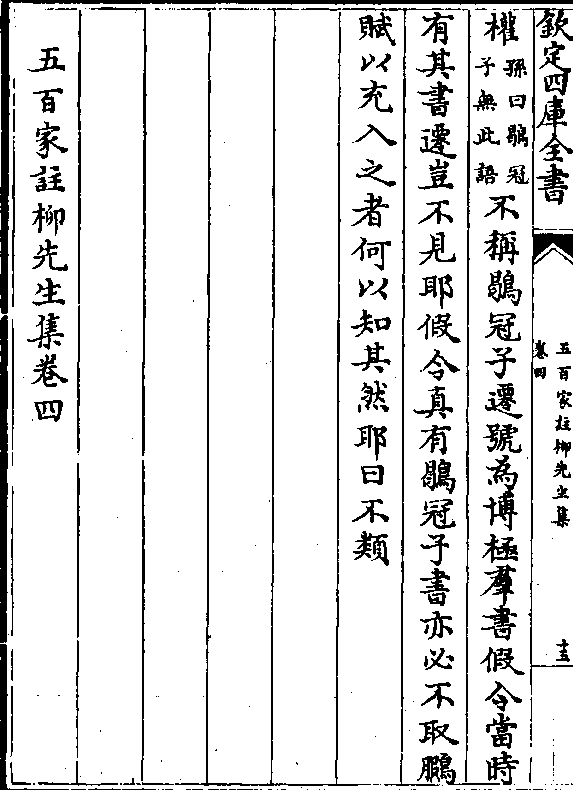 欽定四庫全書
五百家註柳先生集
卷四
十五
權孫曰鶡冠子無此語不稱鶡冠子遷號為博極羣書假令當時
有其書遷豈不見耶假令真有鶡冠子書亦必不取鵩
賦以充入之者何以知其然耶曰不類
五百家註柳先生集卷四